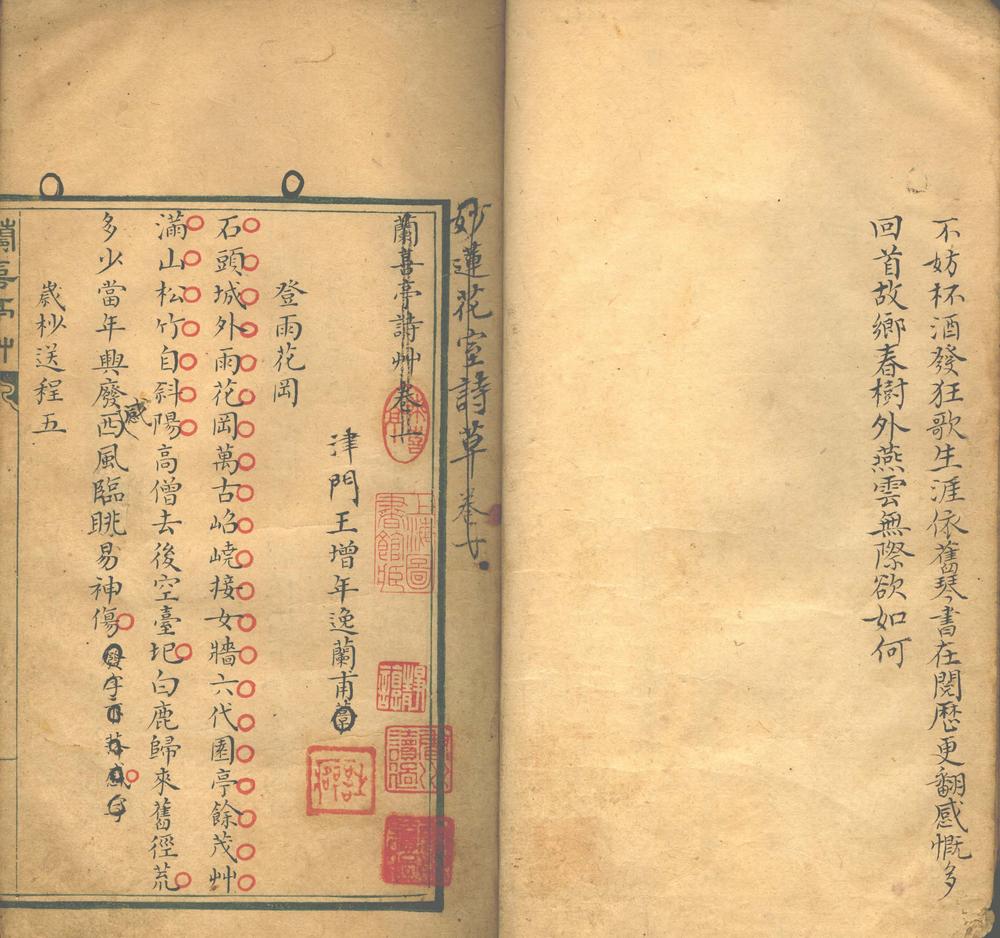 不妨杯酒發狂歌生涯依舊琴書在閱歷更翻感慨多
回首故鄉春樹外燕雲無際欲如何
妙蓮花室詩草卷七
蘭善亭詩艸卷一
津門王增年逸蘭甫
登雨花岡
石頭城外雨花岡萬古峆嶢接女牆六代園亭餘茂艸
滿山松竹自斜陽高僧去後空臺圮白鹿歸來舊徑荒
多少當年興廢西風臨眺易神傷
感
歲杪送程五
上海圖
書館藏